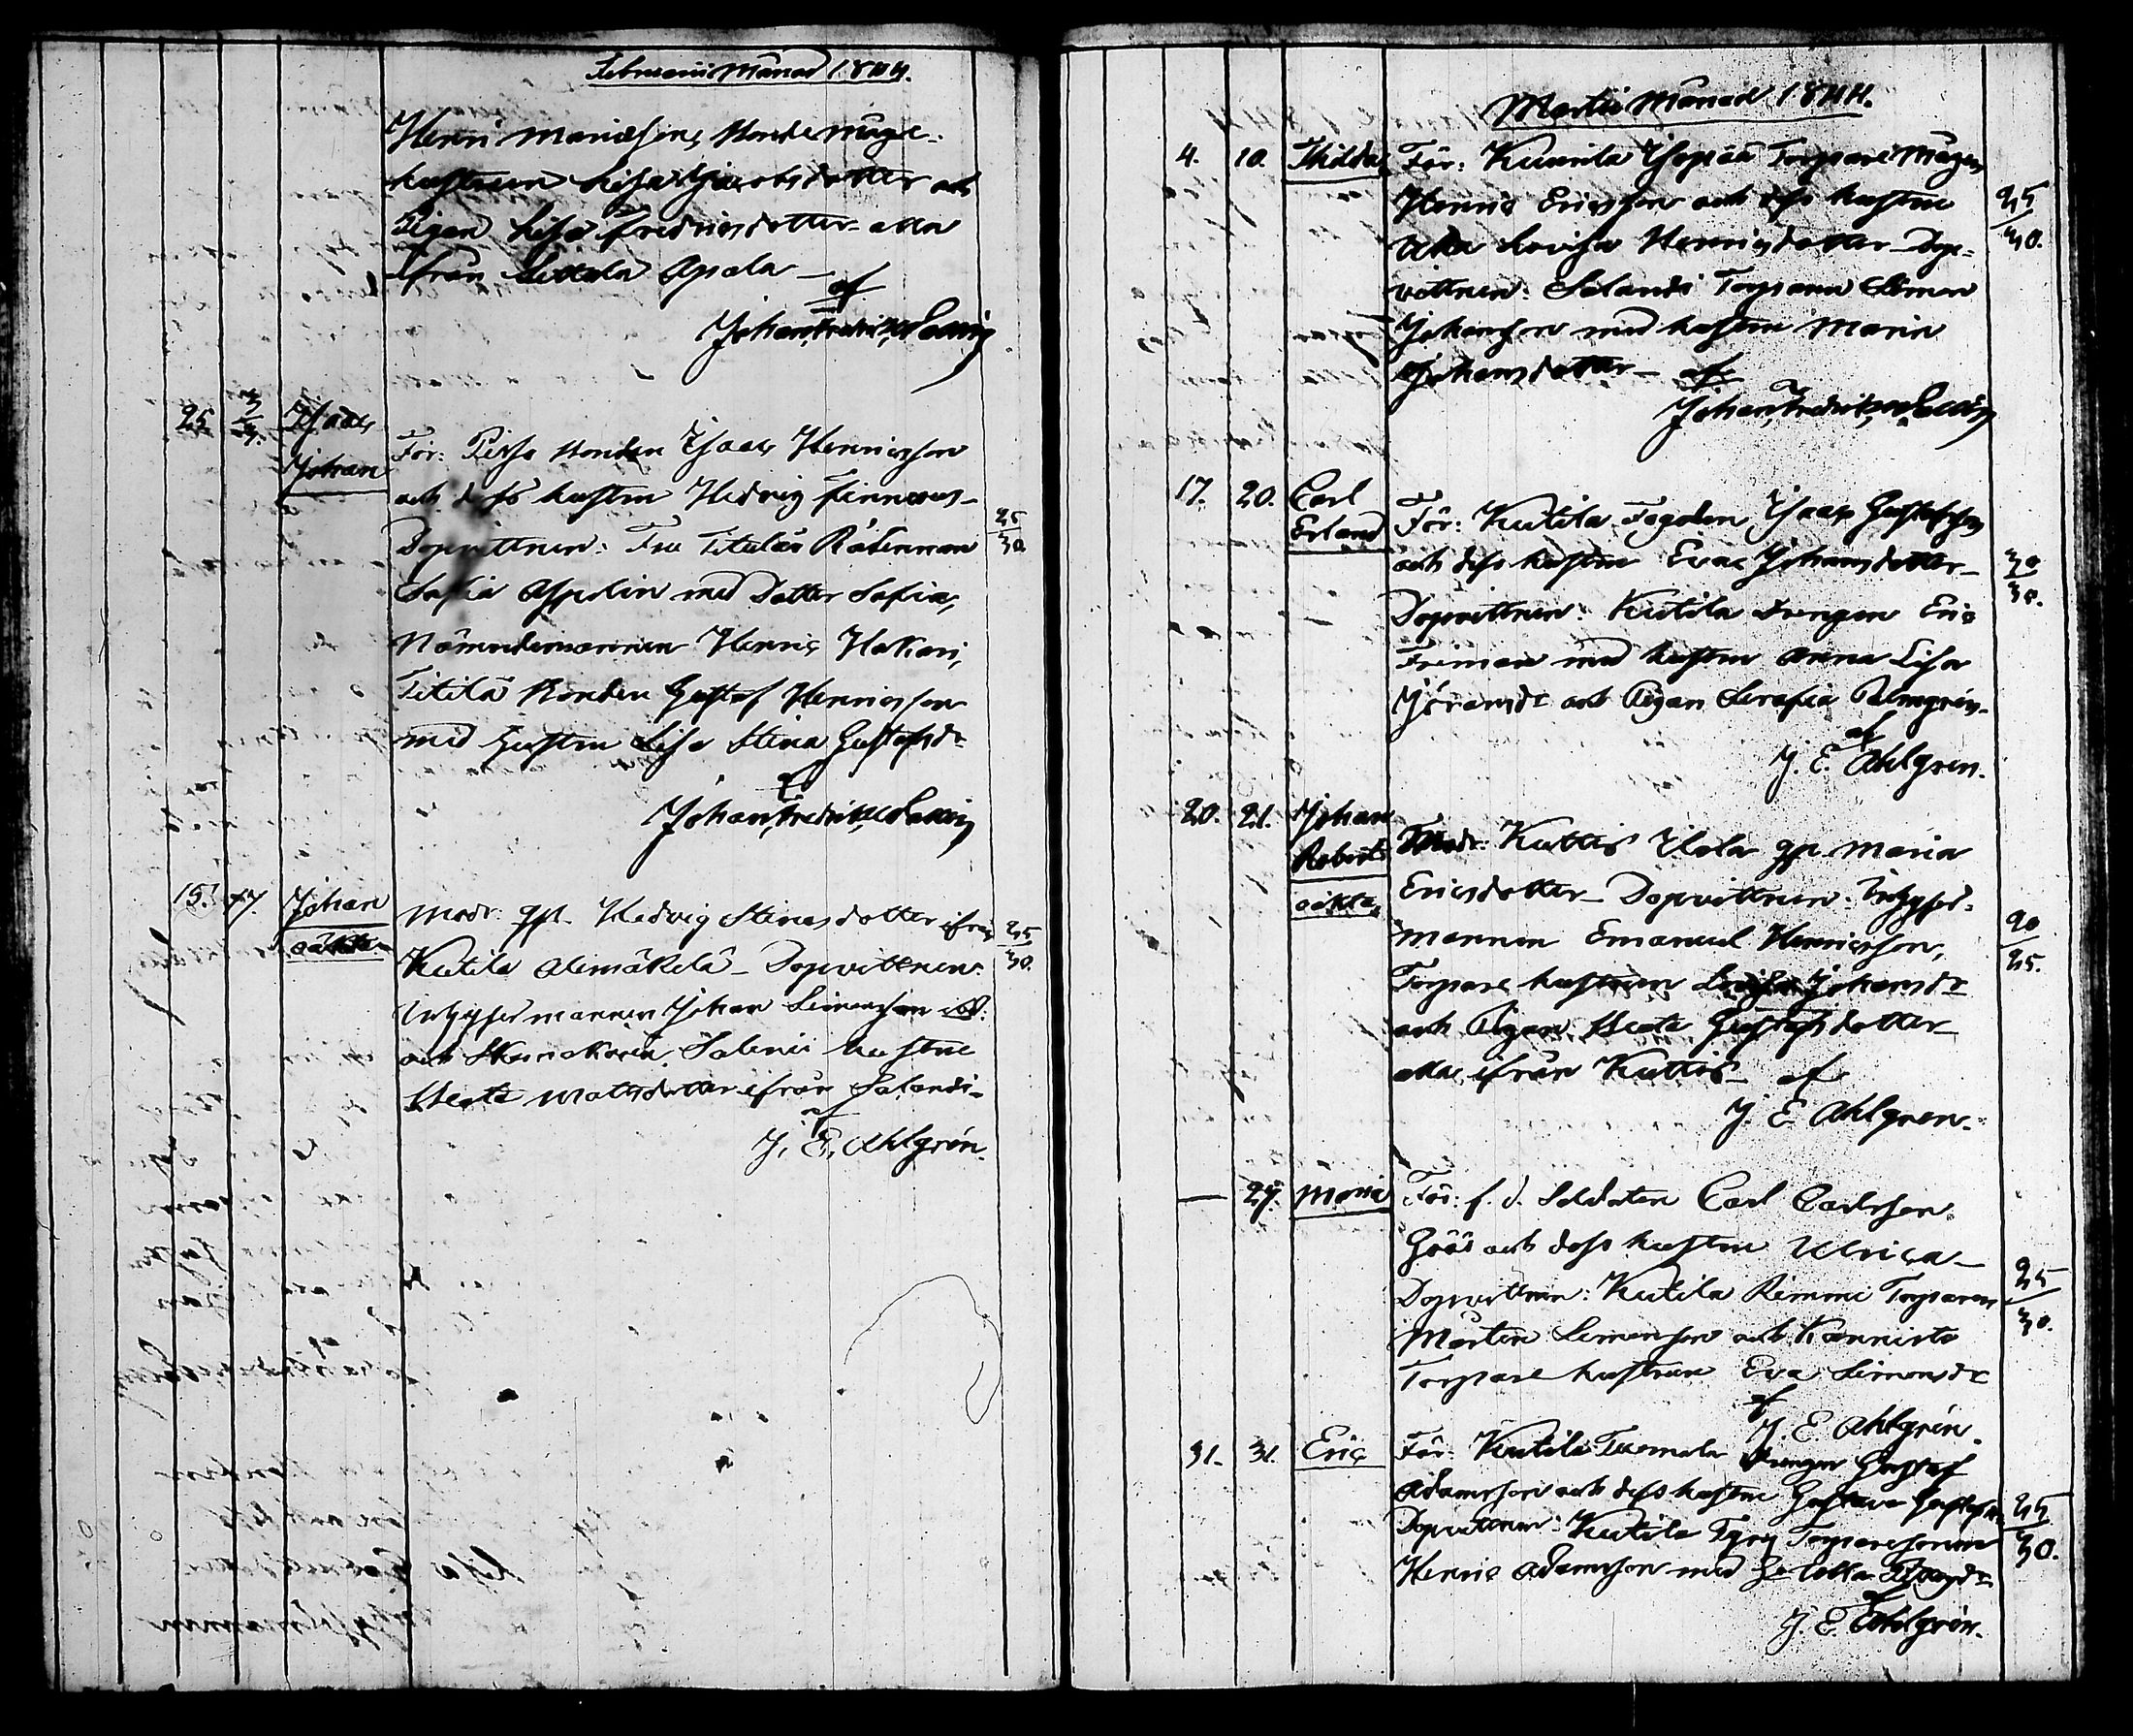 Februarii Månad 1844.
Henri Mariæson, Bonde Måge-
hustrun Lisa Jacobsdotter och
Pigan Lisa Fredricsdotter alla
ifrån Apala
af
Johan Fredrik
25 3/3. Isaac
Johan
För: Bonden Isaac Henricsson
och dess hustru Hedvig
Dopvittnen: Fru Titulär Rådinnan
Safia med Dotter Safia,
Nämndemannen Henric Hakari,
Titilä Bonden Gustaf Henricsson
med Hustru Lisa Stina Gustafsdr
25/30
af
Johan Fredrik
15. 17. Johan
oäkta
Modr: gp. Hedvig Stinasdotter ifrån
Kutila Alimäkilä – Dopvittnen:
Inhysesmannen Johan Simonsson
och hustru
Beata Mattsdotter ifrån Salandi –
25/30.
af
J. E. Ahlgrén.
Martii Månad 1844.
4. 10. Thilda
För: Kumila Torpare Mågen
Henric Ericsson och dess hustru
Ulla Lovisa Henricsdotter – Dop-
vittnen: Salandi Torparen Simon
Johansson med hustru Maria
Johansdotter – af
25/30.
Johan Fredrik
17. 20. Carl
Erland
För: Kutila Fogden Isaac Gustafsson
och dess hustru Eva Johansdotter –
Dopvittnen: Kutila Drengen Eric
Friman med hustru Anna Lisa
Göransdr och Pigan Serafia Palmgrén –
30/30.
af
J. E. Ahlgren.
20. 21. Johan
Robert
oäkta
Modr: Kuttis Ilola gp. Maria
Ericsdotter – Dopvittnen: Inhyses-
mannen Emanuel Henricsson,
Torpare hustrun Johansdr
och Pigan Beata Gustafsdotter –
alla ifrån Kuttis – af
20/25.
J. E. Ahlgren.
— 27. Maria
För: f. d. Soldaten Carl Carlsson
Gräs och dess hustru Ulrica –
Dopvittnen: Kutila Rimmi Torparen
Mårten Simonsson och Kannisto
Torpare hustrun Eva Simonsdr
25/30.
af
J. E. Ahlgrén.
31. 31. Eric
För: Kutila Tuomola Drengen Gustaf
Adamsson och dess hustru Gustava
Dopvittnen: Kutila Tyry Torparesonen
Henric Adamsson med Ulla
25/30.
J. E. Ahlgrén.